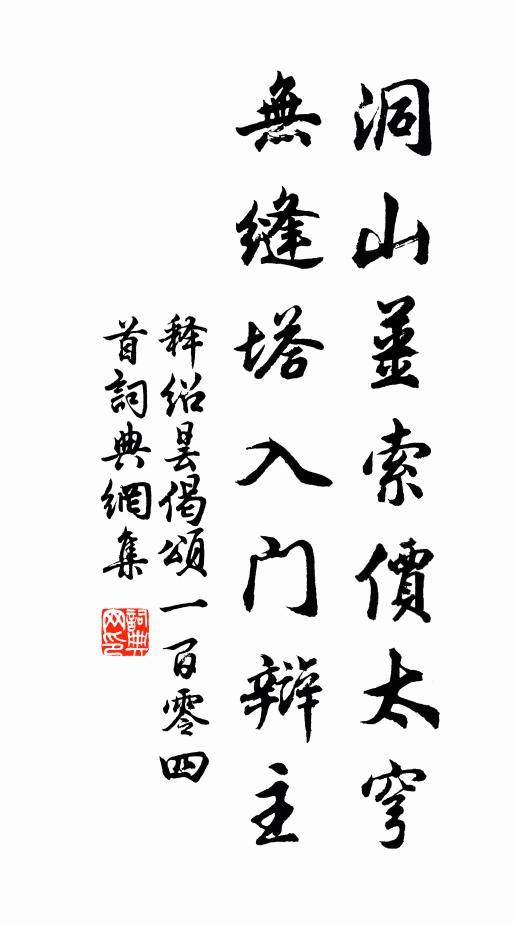 洞山薑索價太穹
無縫塔入門辯主
释紹曇偈頌一百零四
首詞典網集
詞典網印